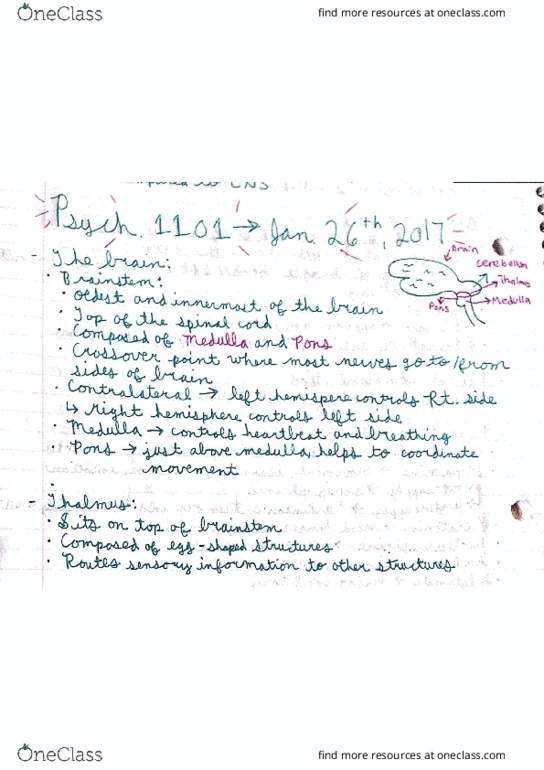 OneClass
find more resources at oneclass.com
CNS
Psych. 1101 → Jan. 26th, 2017
- The brain:
Brain
cerebellum
Thalmus
Medulla
Pons
• Brainstem:
• oldest and innermost of the brain
• Top of the spinal cord
• Composed of Medulla and Pons
Crossover point where most nerves go to/from
sides of brain
• Contralateral → left hemispere controls Rt. side
↳ right hemisphere controls left side
• Medulla → controls heartbeat and breathing
• Pons → just above medulla, helps to coordinate
movement
- Thalmus:
• Sits on top of brainstem
• Composed of egg-shaped structures
• Routes sensory information to other structures
OneClass
find more resources at oneclass.com